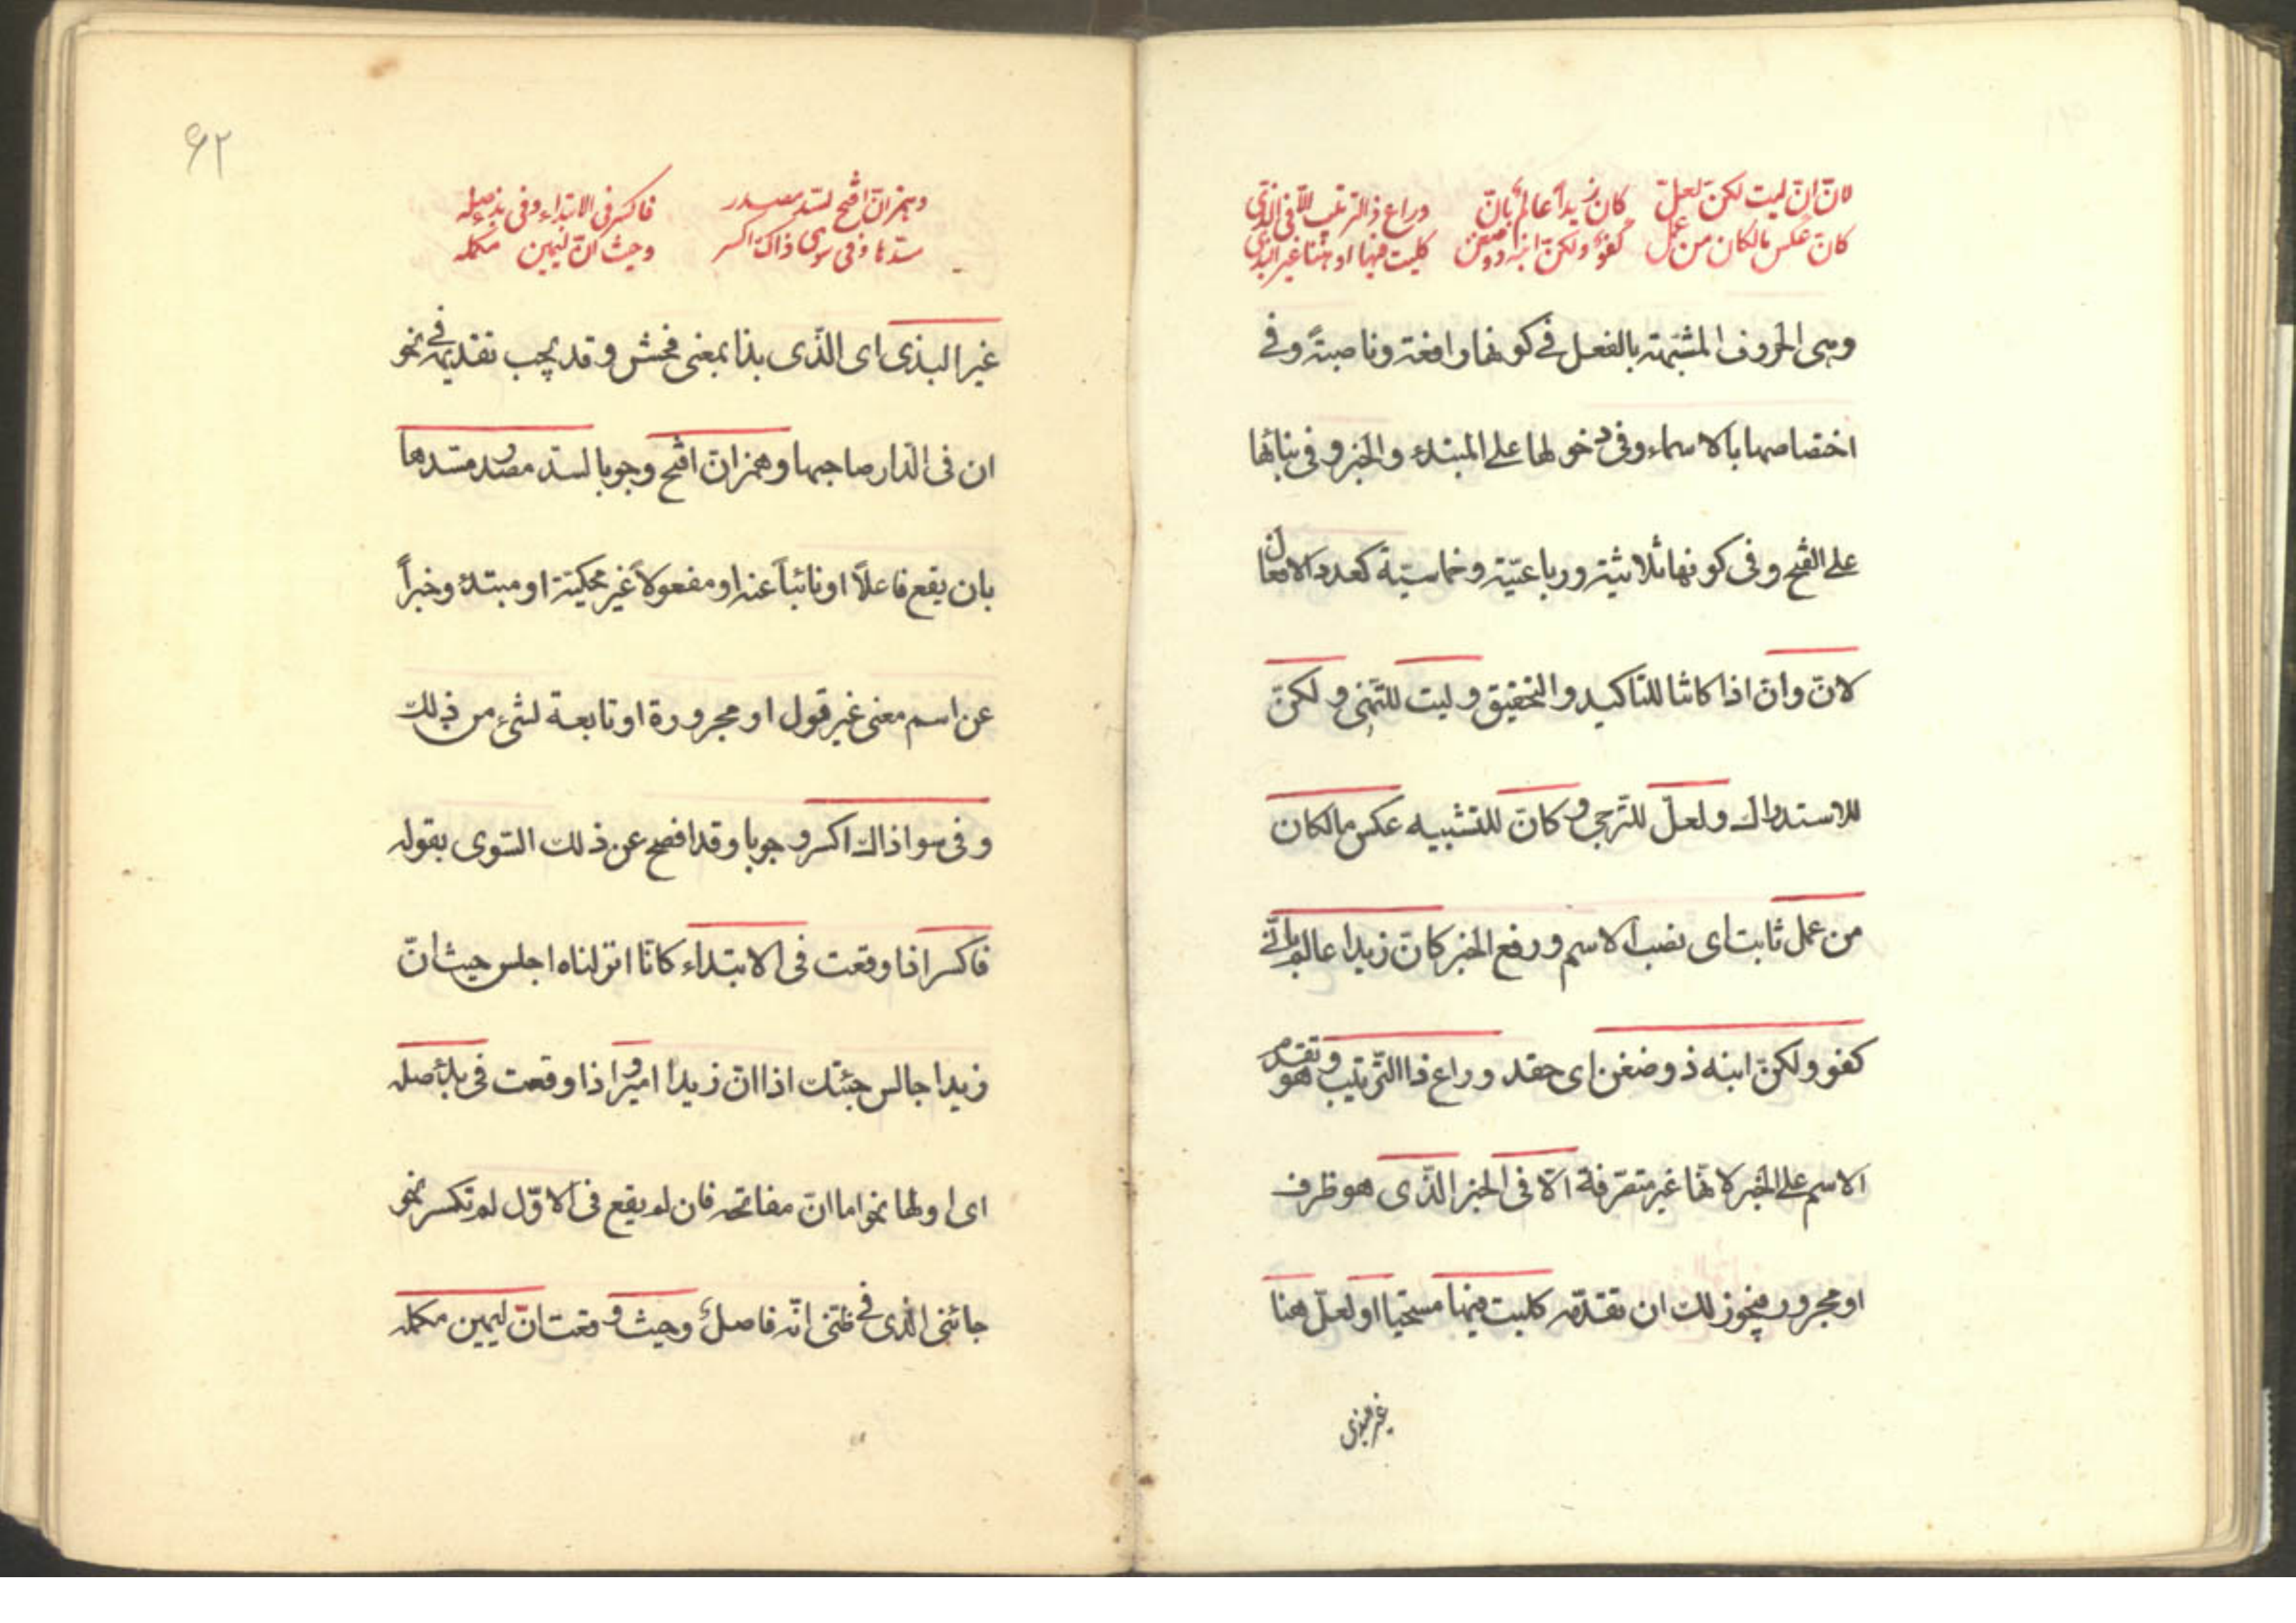 لانّ انّ ليت لكنّ لعلّ كان زيداً عالم بانّي وراع ذا الترتيب الّا في الذي
كانّ عكس مالكان من عمل كفؤ ولكنّ ابنه ذو ضغن كليت فيها او هنا غير البذي
وهى الحروف المشبهة بالفعل فى كونها رافعة وناصبةً وفى
اختصاصها بالاسماء وفى دخولها على المبتدء والخبر وفى بنائها
على الفتح وفى كونها ثلاثية ورباعيّة وخماسيّة كعدد الافعال
لانّ وانّ اذا كانتا للتاكيد والتحقيق وليت للتّمنى ولكنّ
للاستدراك ولعلّ للتّرجى وكانّ للتشبيه عكس مالكان
من عمل ثابت اى نصب الاسم ورفع الخبر كانّ زيدا عالم بانّى
كفو ولكنّ ابنه ذو ضغن اى حقد وراع ذا التّرتيب وهو تقدم
الاسم على الخبر لانّها غير متصرّفة الّا فى الخبر الّذى هو ظرف
او مجرور فيجوز لك ان تقدّمه كليت فيها مستحيا او لعلّ هنا
غير البذى
٦٢
وهمز انّ افتح لسدّ مصدر فاكسر فى الابتداء وفى بدء صله
مسدّها وفى سوى ذاك اكسر وحيث انّ ليمين مكمله
غير البذى اى الّذى بذا بمعنى فحش وقد يجب تقديمه فى نحو
ان فى الدّار صاحبها وهمز انّ افتح وجوبا لسدّ مصدر مسدها
بان يقع فاعلاً او نائباً عنه او مفعولاً غير محكيّة او مبتدء وخبراً
عن اسم معنى غير قول او مجرورة او تابعة لشئ من ذلك
وفى سوا ذاك اكسر وجوبا وقد افصح عن ذلك السّوى بقوله
فاكسر اذا وقعت فى الابتداء كانّا انزلناه اجلس حيث انّ
زيدا جالس جئتك اذا انّ زيدا امير واذا وقعت فى بدء صله
اى اولها نحو اما انّ مفاتحه فان لم يقع فى الاوّل لم تكسر نحو
جائنى الّذى فى ظنّى انّه فاضل وحيث وقعت انّ ليمين مكمله